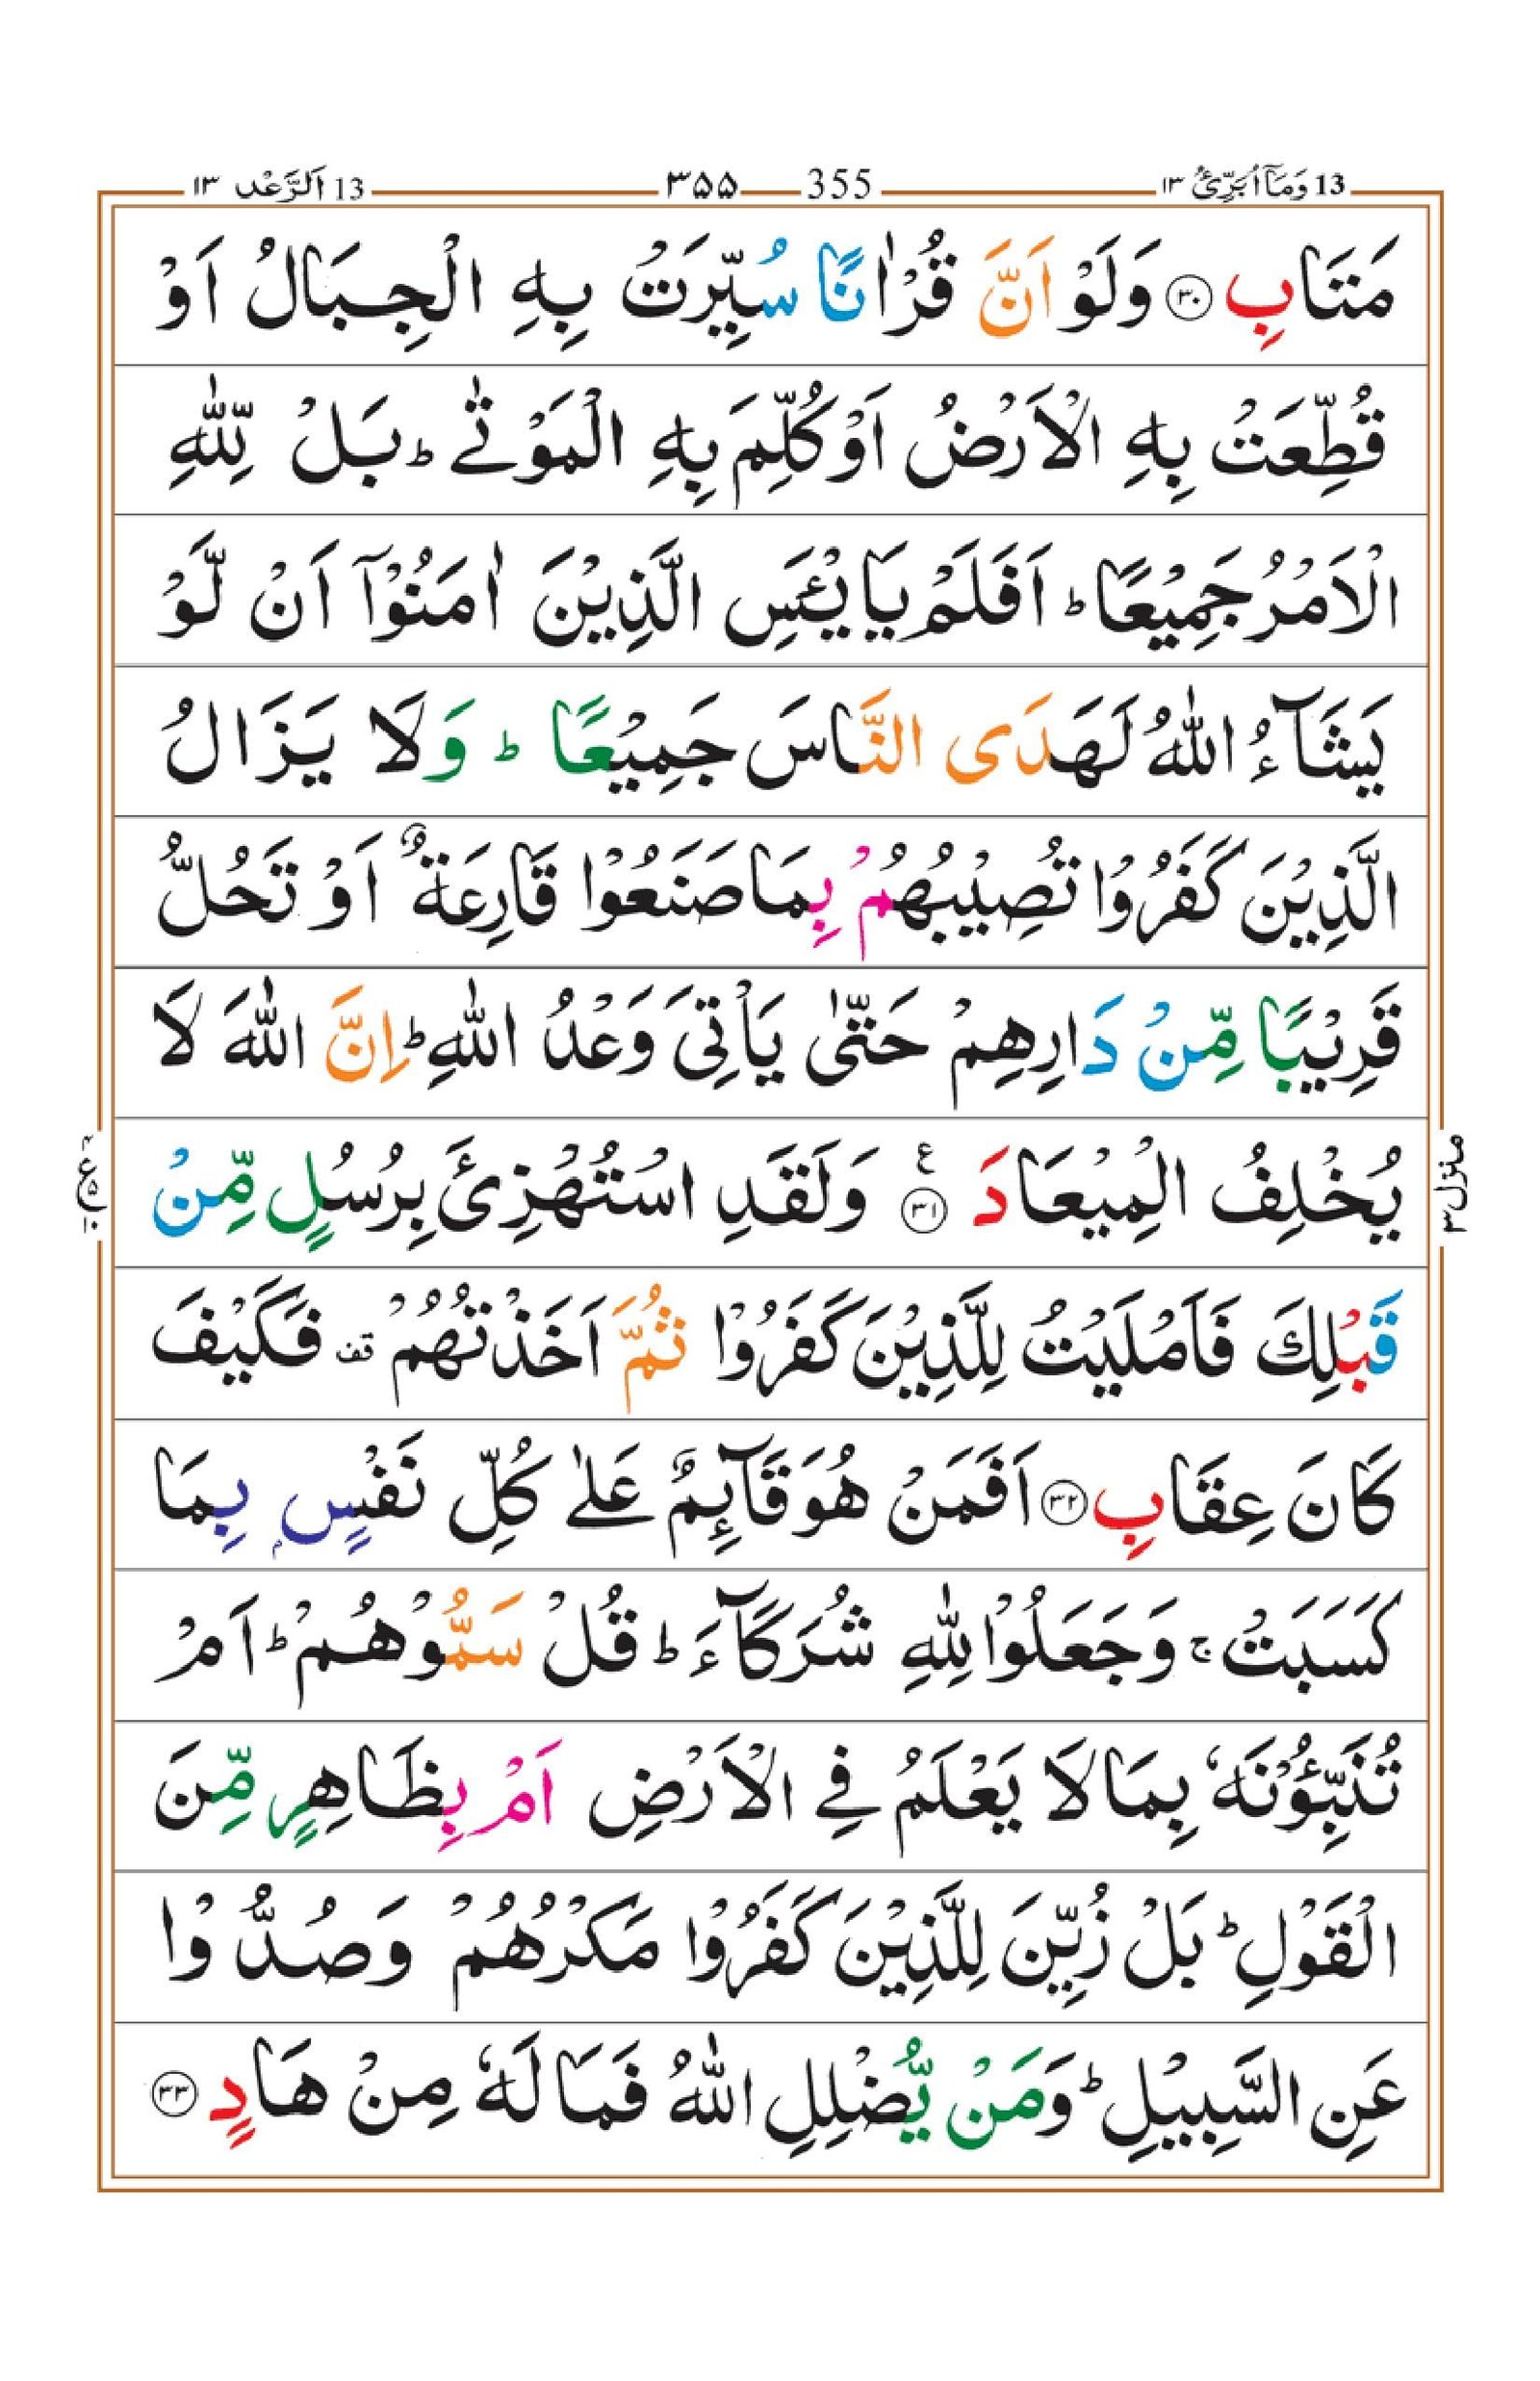 13 وَمَآ اُبَرِّئُ ۱۳
355 ۳۵۵
13 اَلرَّعْد ۱۳
مَتَابِ ۝۳۰ وَلَوْ اَنَّ قُرْاٰنًا سُيِّرَتْ بِهِ الْجِبَالُ اَوْ
قُطِّعَتْ بِهِ الْاَرْضُ اَوْ كُلِّمَ بِهِ الْمَوْتٰى ؕ بَلْ لِّلّٰهِ
الْاَمْرُ جَمِيْعًا ؕ اَفَلَمْ يَا۟يْـَٔسِ الَّذِيْنَ اٰمَنُوْۤا اَنْ لَّوْ
يَشَآءُ اللّٰهُ لَهَدَى النَّاسَ جَمِيْعًا ؕ وَلَا يَزَالُ
الَّذِيْنَ كَفَرُوْا تُصِيْبُهُمْ بِمَا صَنَعُوْا قَارِعَةٌ اَوْ تَحُلُّ
قَرِيْبًا مِّنْ دَارِهِمْ حَتّٰى يَاْتِيَ وَعْدُ اللّٰهِ ؕ اِنَّ اللّٰهَ لَا
يُخْلِفُ الْمِيْعَادَ ۝۳۱ ع وَلَقَدِ اسْتُهْزِئَ بِرُسُلٍ مِّنْ
قَبْلِكَ فَاَمْلَيْتُ لِلَّذِيْنَ كَفَرُوْا ثُمَّ اَخَذْتُهُمْ قف فَكَيْفَ
كَانَ عِقَابِ ۝۳۲ اَفَمَنْ هُوَ قَآئِمٌ عَلٰى كُلِّ نَفْسٍۭ بِمَا
كَسَبَتْ ۚ وَجَعَلُوْا لِلّٰهِ شُرَكَآءَ ؕ قُلْ سَمُّوْهُمْ ؕ اَمْ
تُنَبِّـُٔوْنَهٗ بِمَا لَا يَعْلَمُ فِي الْاَرْضِ اَمْ بِظَاهِرٍ مِّنَ
الْقَوْلِ ؕ بَلْ زُيِّنَ لِلَّذِيْنَ كَفَرُوْا مَكْرُهُمْ وَصُدُّوْا
عَنِ السَّبِيْلِ ؕ وَمَنْ يُّضْلِلِ اللّٰهُ فَمَا لَهٗ مِنْ هَادٍ ۝۳۳
منزل ۳